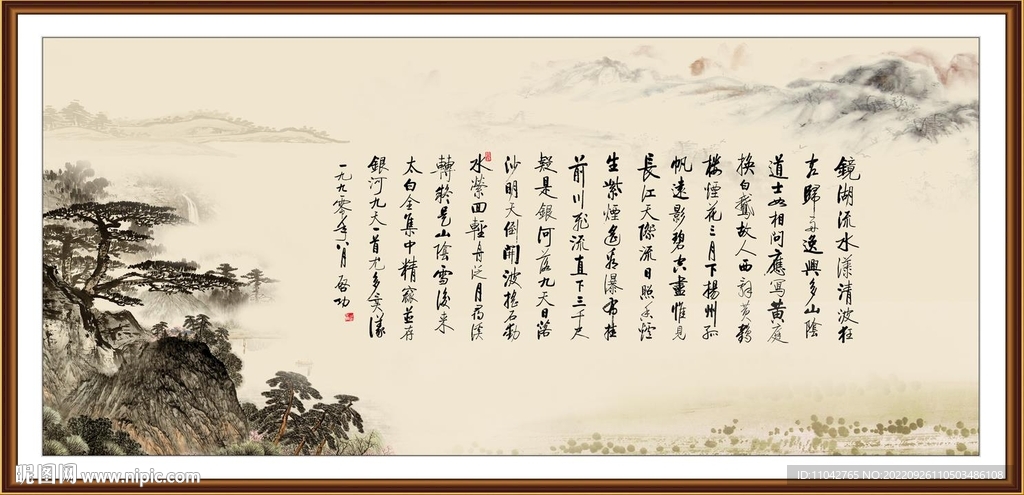 鏡湖流水漾清波狂
客歸舟逸興多山陰
道士如相問應寫黄庭
換白鵞故人西辭黄鶴
樓煙花三月下楊州孤
帆遠影碧空盡惟見
長江天際流日照香爐
生紫煙遥看瀑布挂
前川飛流直下三千尺
疑是銀河落九天日落
沙明天倒開波搖石動
水縈回輕舟泛月尋溪
轉疑是山陰雪後來
太白全集中精並存
銀河九天一首尤多
一九九零年八月 啓功
昵图网 www.nipic.com
ID:11042765 NO:20220926110503486108